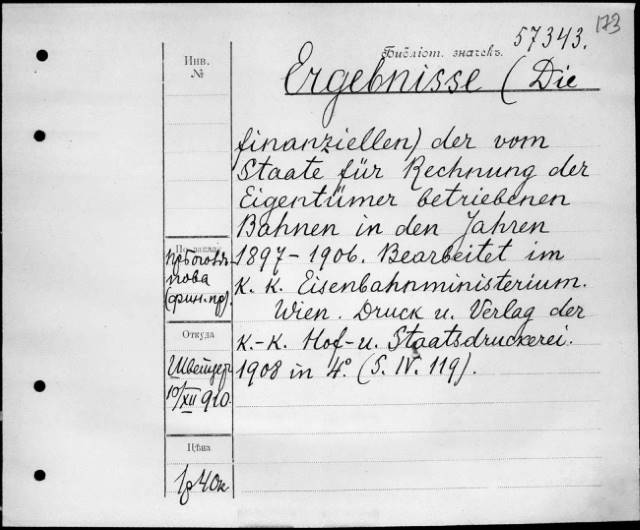 173
57343.
Библіот. значекъ.
Инв.
№
Ergebnisse (Die
finanziellen) der vom
Staate für Rechnung der
Eigentümer betriebenen
Bahnen in den Jahren
1897-1906. Bearbeitet im
K. K. Eisenbahnministerium.
Wien. Druck u. Verlag der
K.-K. Hof-u. Staatsdruckerei.
1908 in 4º. (S. IV. 119).
(фин. пр).
Откуда
Швейцер
10/XII 910
Цѣна
1р 40к